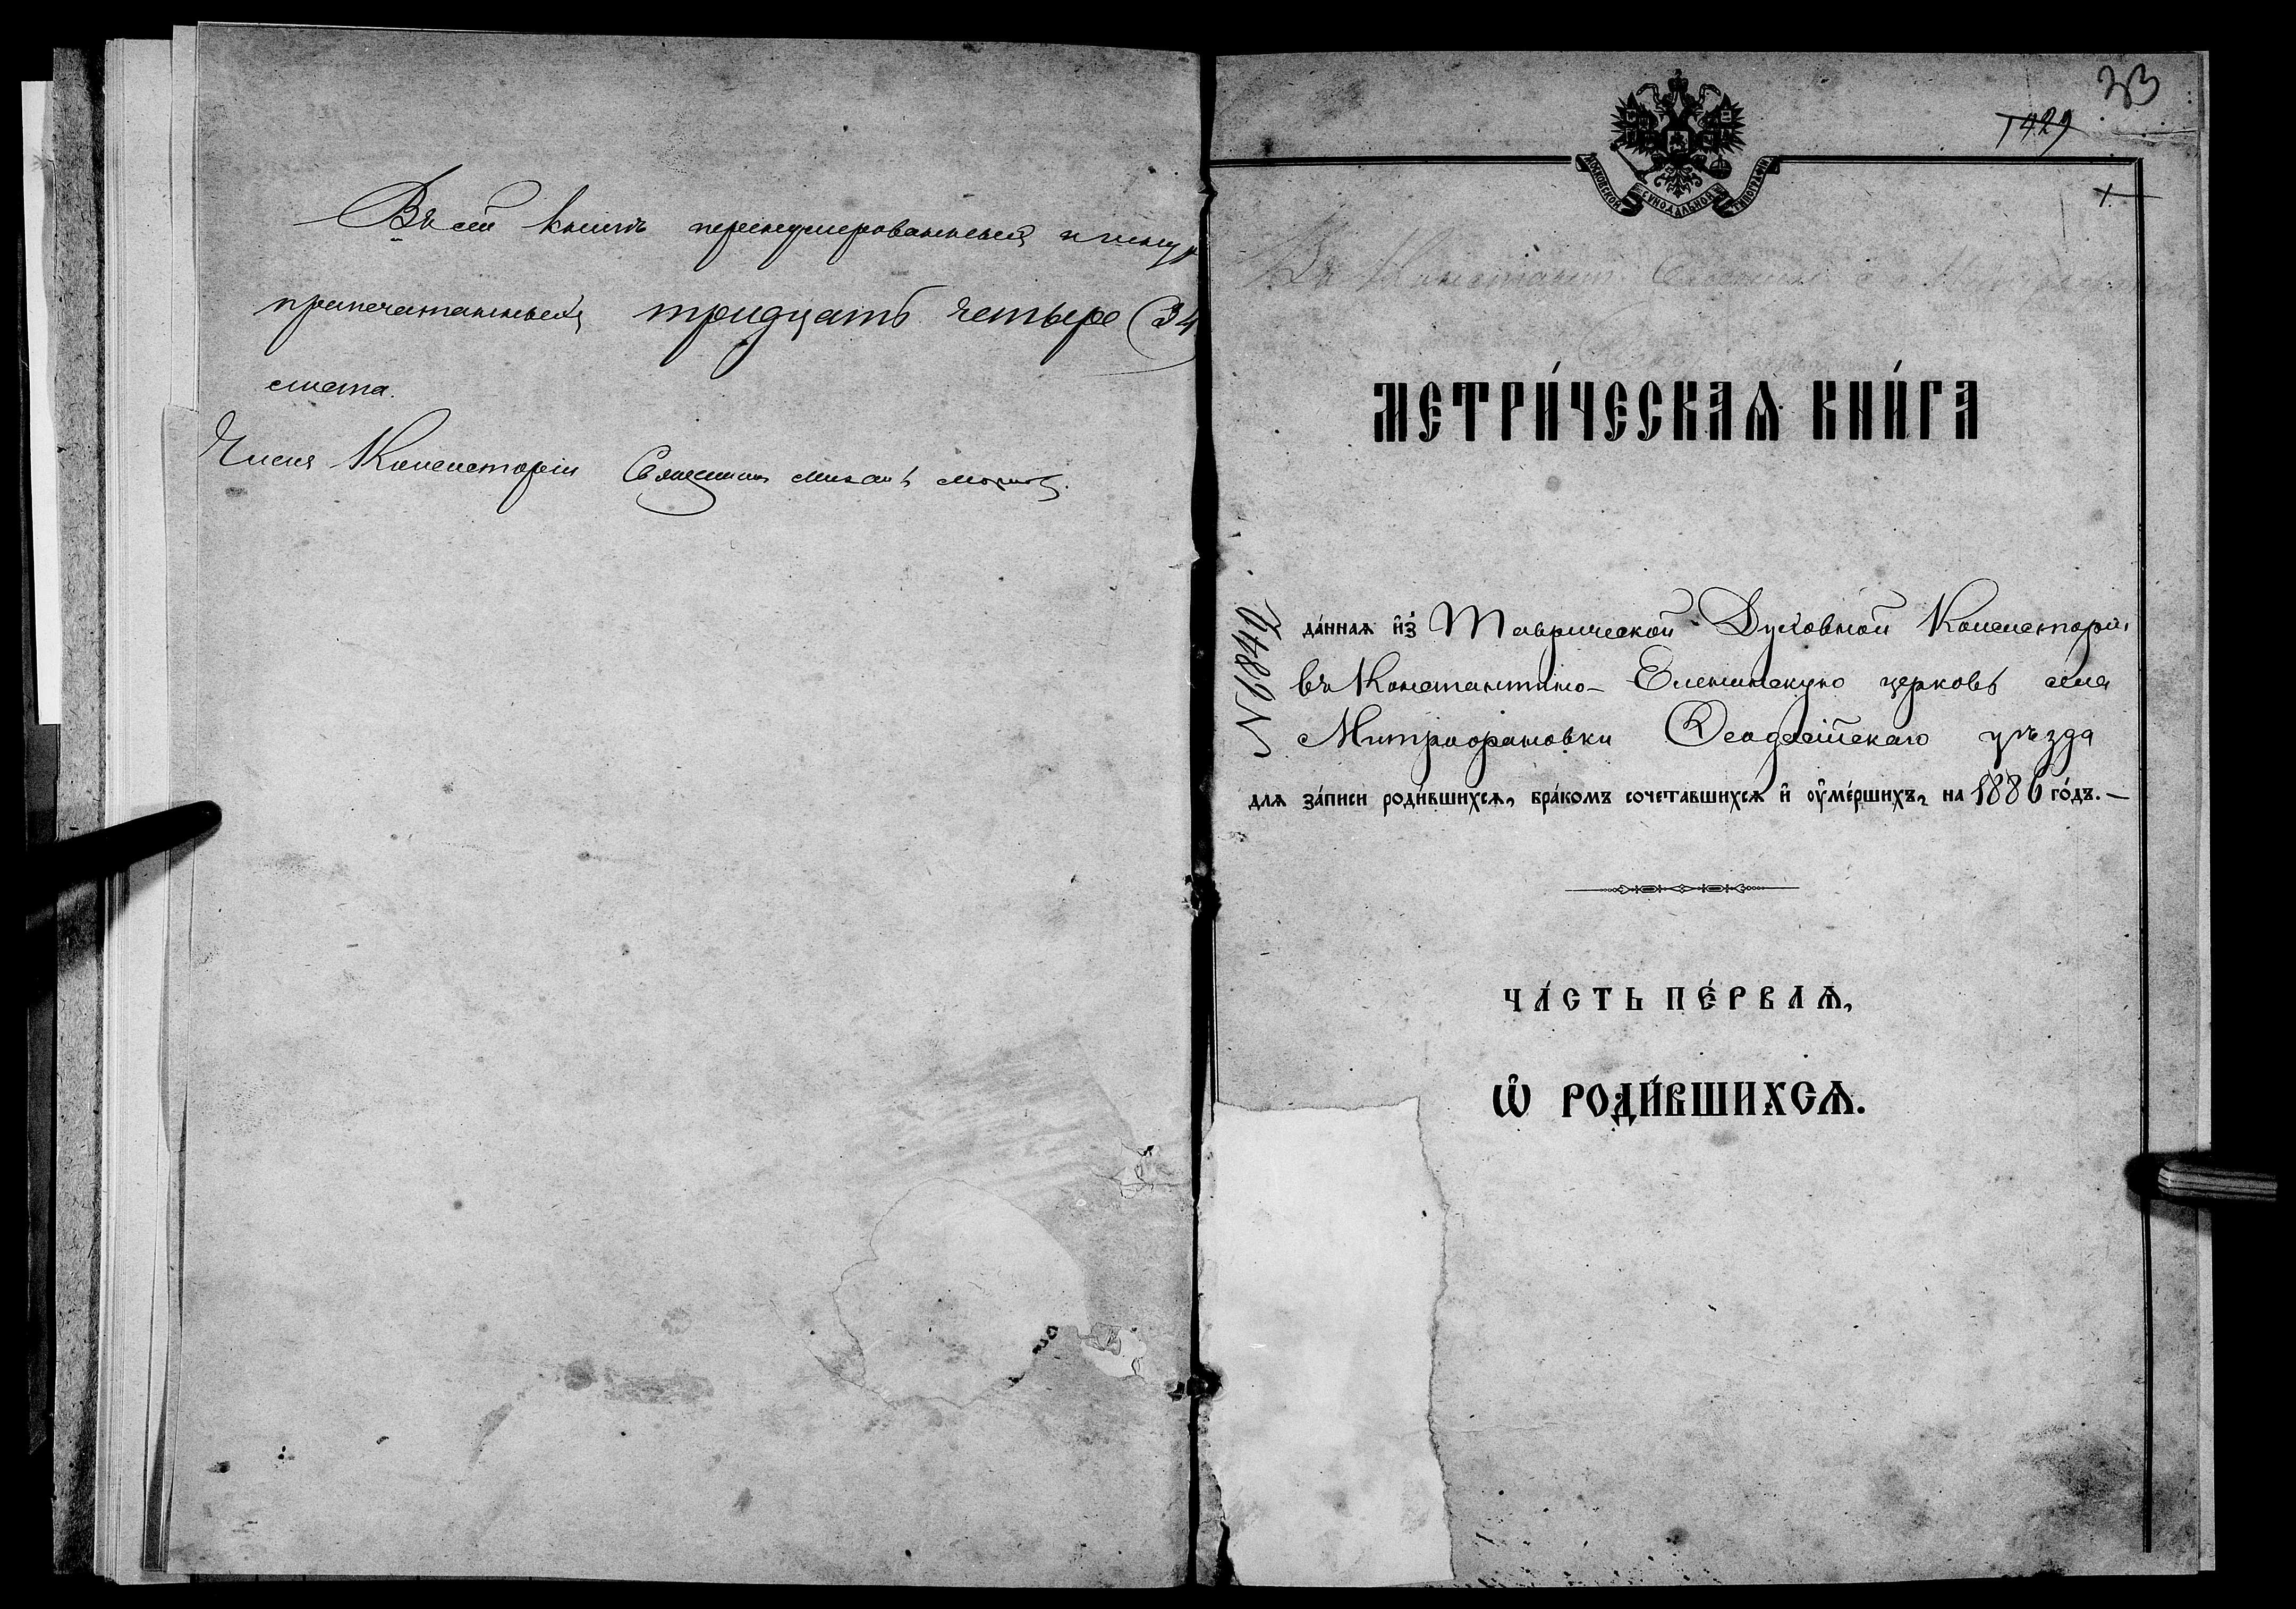 Въ сей книгѣ перенумерованныхъ и шнур
припечатанныхъ тридцать четыре (34
листа.
Членъ Консисторіи Священникъ Михаилъ
33
1429
1.
МОСКОВСКОЙ СѴНОДАЛЬНОЙ ТИПОГРАФІИ
Въ Константино Еленин с. Митрофановки
МЕТРИ́ЧЕСКАѦ КНИ́ГА
№ 6840
да́ннаѧ и҆з̾ Таврической Духовной Консисторіи
въ Константино-Еленинскую церковь села
Митрофановки Ѳеодосійскаго уѣзда
длѧ за́писи роди́вшихсѧ, бра́комъ сочета́вшихсѧ и҆ ᲂу҆ме́ршихъ, на 1886 го́дъ.—
ЧА́СТЬ ПЕ́РВАѦ,
Ѽ РОДИ́ВШИХСѦ.